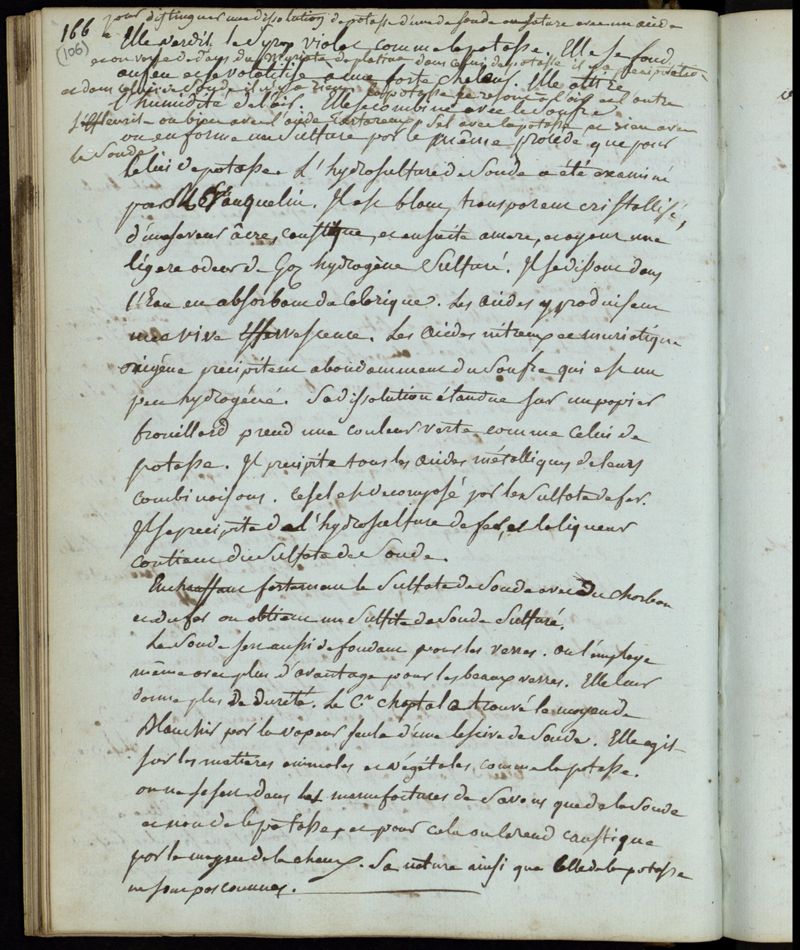 166
(106)
pour distinguer une dissolution de potasse d'une de soude on sature avec un acide
Elle verdit le syrop violat comme la potasse. Elle se fond
et on verse dedans du Muriate de platine dans celui de potasse il y a precipitation
au feu et se volatilise a une forte chaleur. Elle attire
et dans celui de soude il n'y a rien. la potasse se resout a l'air et l'autre
l'humidité de l'air. Elle se combine avec le soufre
s'effleurit ou bien avec l'acide tartareux sel avec la potasse et rien avec
on en forme un sulfure par le même procédé que pour
la Soude
celui de potasse. L'hydrosulfure de Soude a été examiné
par Vauquelin. Il est blanc, transparent cristallisé,
d'une saveur âcre, caustique, et ensuite amere, et ayant une
légere odeur de Gaz hydrogène Sulfuré. Il se dissout dans
l'Eau en absorbant du Calorique. Les acides y produisent
une vive Effervescence. Les acides nitreux et muriatique
oxigêné precipitent abondamment du Soufre qui est un
peu hydrogéné. Sa dissolution étendue sur un papier
brouillard prend une couleur verte comme celui de
potasse. Il precipite tous les acides métalliques de leurs
combinaisons. Ce sel est decomposé par le Sulfate de fer.
Il se precipite de l'hydrosulfure de fer, et la liqueur
contient du Sulfate de Soude.
En chauffant fortement le Sulfate de Soude avec du charbon
et du fer on obtient un Sulfite de Soude Sulfuré.
La Soude sert aussi de fondant pour les verres. on l'employe
même avec plus d'avantage pour les beaux verres. Elle leur
donne plus de dureté. Le Cen chaptal a trouvé le moyen de
Blanchir par la vapeur seule d'une lessive de Soude. Elle agit
sur les matieres animales et végétales comme la potasse.
on ne se sert dans les manufactures de Savons que de la Soude
et non de la potasse, et pour cela on la rend caustique
par le moyen de la chaux. Sa nature ainsi que celle de la potasse
ne sont pas connues.